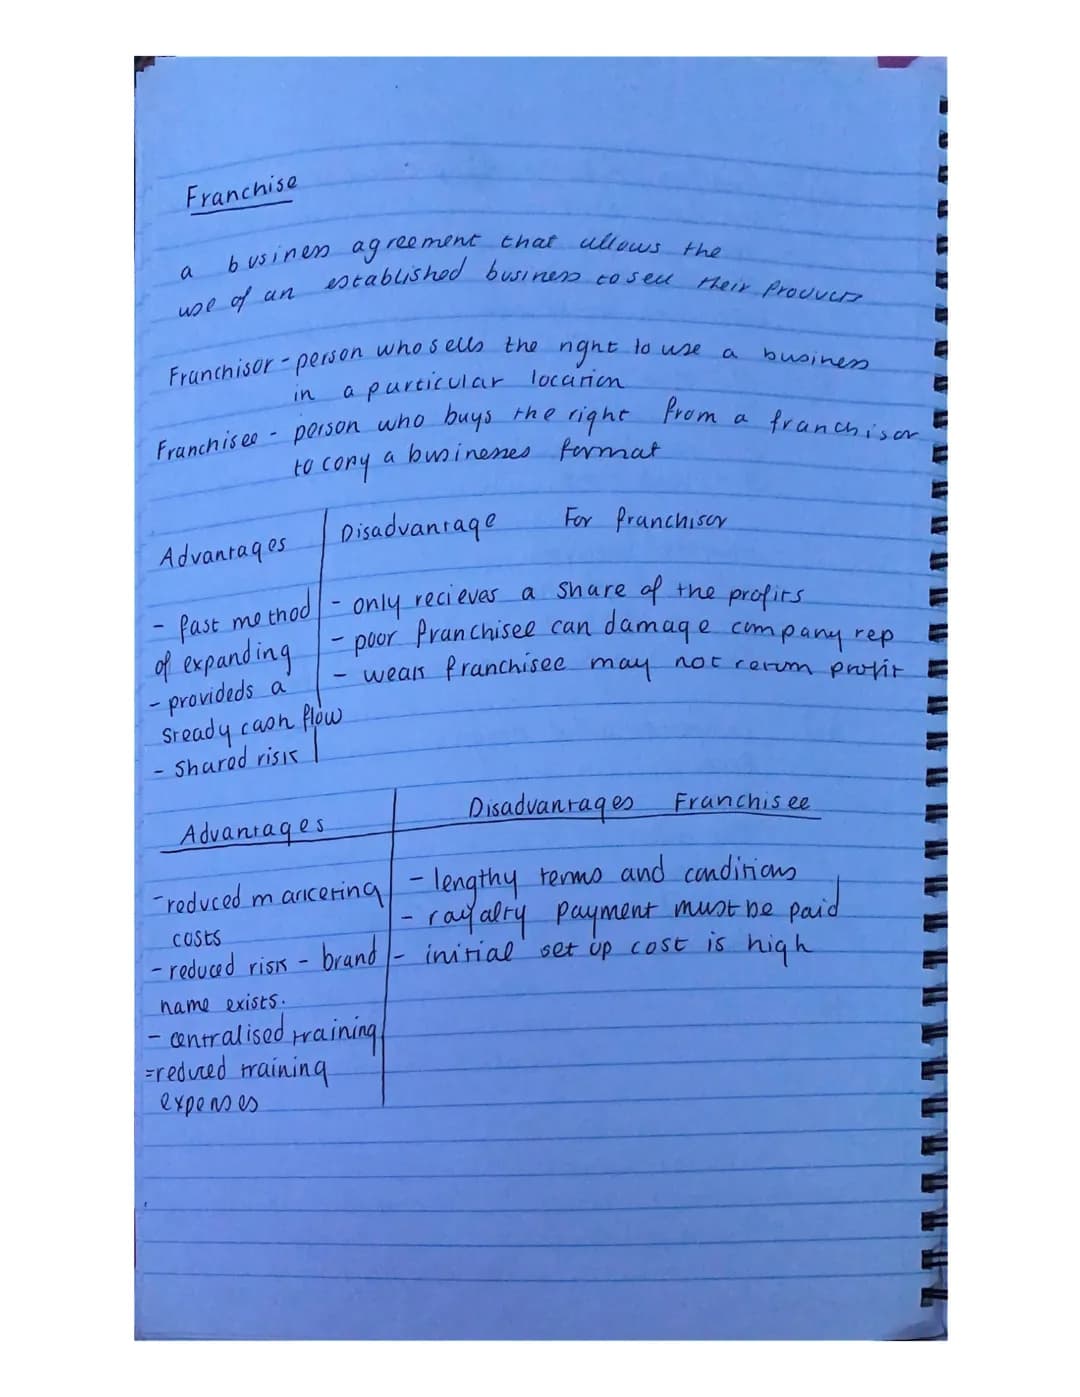 Franchise
a business agreement that allows the
use of an established business to sell their products
Franchisor - person who sells the right to use a business
in a particular location
Franchisee - person who buys the right from a franchisor
to copy a businesses format
Advantages Disadvantage For franchisor
- fast method
of expanding
- provideds a
steady cash flow
- Shared risk
- only recieves a share of the profits
- poor franchisee can damage company rep
- weak franchisee may not return profit
Advantages Disadvantages Franchisee
- reduced marketing
costs
- reduced risk - brand
name exists.
- centralised training
= reduced training
expenses
- lengthy terms and conditions
- rayalty payment must be paid
- initial set up cost is high